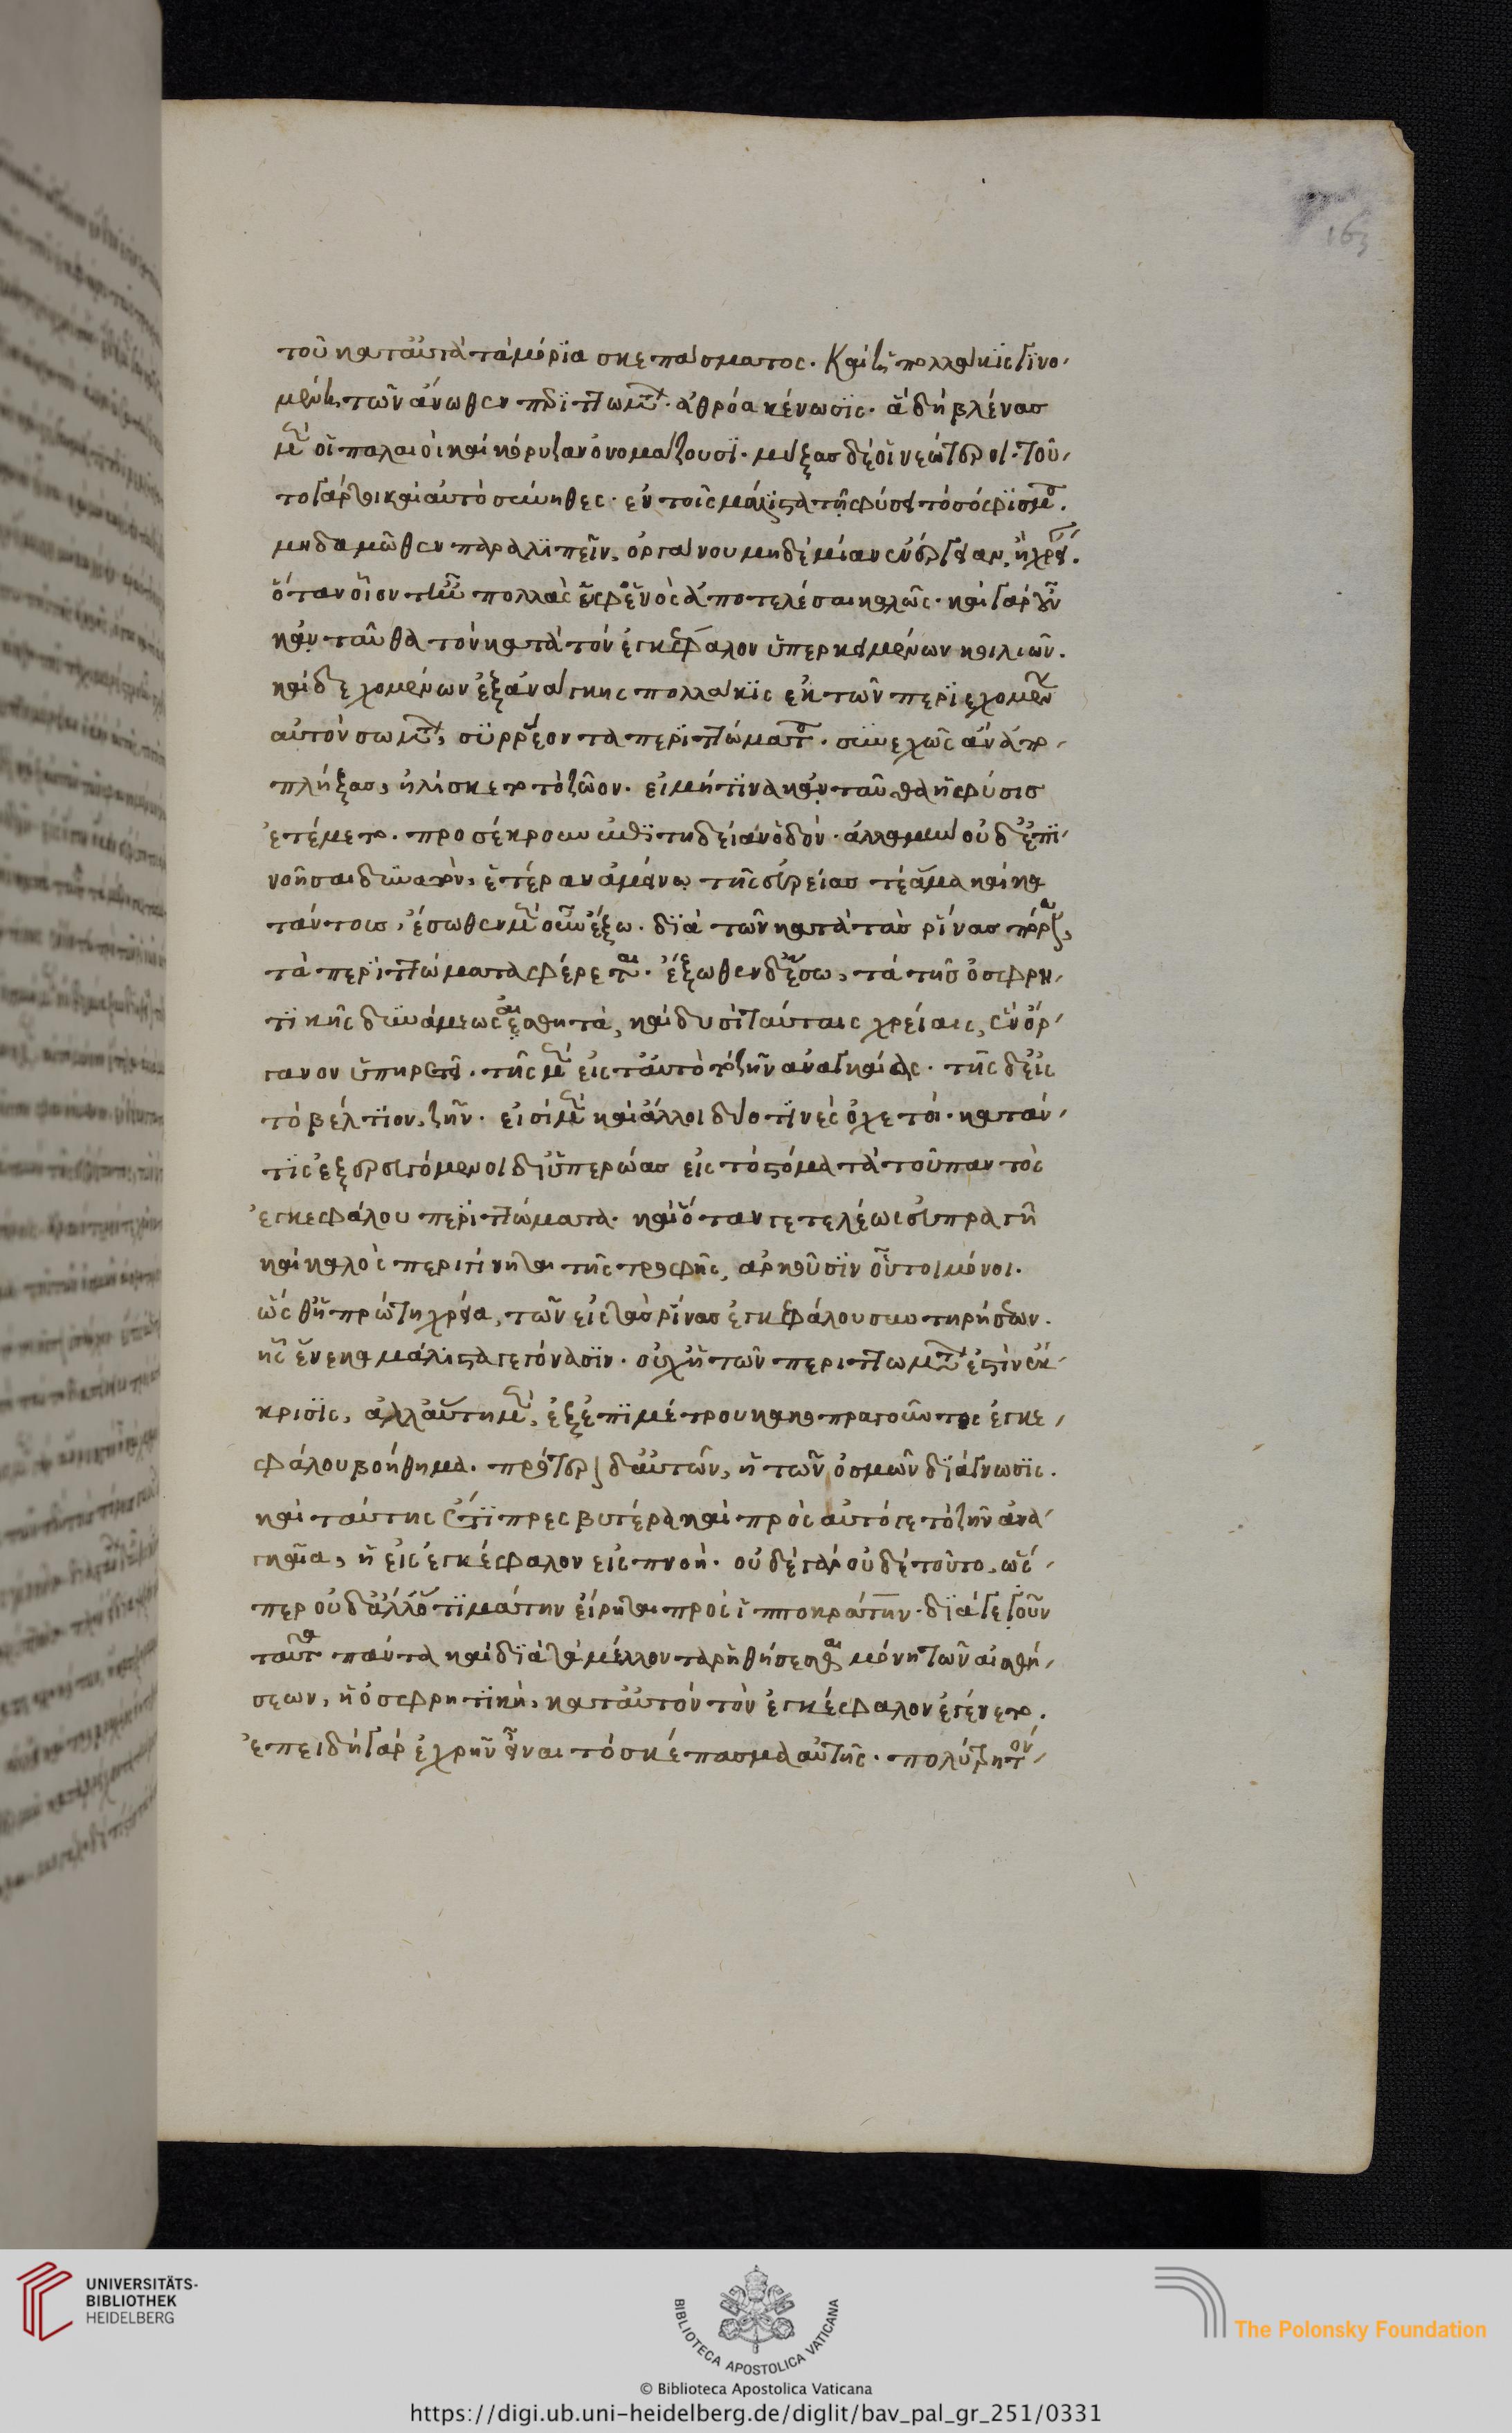 163
τοῦ κατ' αὐτὰ τὰ μόρια σκεπάσματος. καὶ ἡ πολλάκις γινο
μένη τῶν ἄνωθεν περιττωμάτ ἀθρόα κένωσις. ἃ δὴ βλένας
μὲν οἱ παλαιοὶ καὶ κόρυζαν ὀνομάζουσι. μύξας δὲ οἱ νεώτεροι. τοῦ
το γάρ καὶ αὐτὸ σύνηθες ἐν τοῖς μάλιστα τῆς φύσεως τὸ σόφισμα.
μηδαμῶθεν παραλιπεῖν, ὀργάνου μηδὲ μίαν ἐνέργειαν, ἢ χρεί.
ὅταν οἷόν τ' ἦν πολλὰς ἐφ' ἑνὸς ἀποτελέσαι καλῶς. καὶ γὰρ οὖν
κἀνταῦθα τὸν κατὰ τὸν ἐγκέφαλον ὑπερκειμένων κοιλιῶν.
καὶ δεχομένων ἐξ ἀνάγκης πολλάκις ἐκ τῶν περιεχομέν
αὐτὸν σωμάτ, συρρέοντα περιττώματα. συνεχῶς ἂν ἀπο
πλήξας, ἡλίσκετο τὸ ζῶον. εἰ μή τινα κἀνταῦθα ἡ φύσις
ἐτέμετο. προσέκρουν ἐπιτηδείαν ὁδόν. ἀλλὰ μὴν οὐδ' ἐπι
νοῆσαι δυνατὸν, ἑτέραν ἀμείνω τῆς εὐρείας τὲ ἅμα καὶ κα
τάντους, ἔσωθεν μὲν οὖν ἔξω. διὰ τῶν κατὰ τὰς ῥίνας πόρων,
τὰ περιττώματα φέρεται. ἔξωθεν δ' ἔσω, τὰ τῆς ὀσφρη
τικῆς δυνάμεως αἰσθητὰ, καὶ δυσὶ ταύταις χρείαις, ἓν ὄρ
γανον ὑπηρετεῖ. τῆς μὲν εἰς ταὐτὸ τὸ ζῆν ἀναγκαίας. τῆς δ' εἰς
τὸ βέλτιον ζῆν. εἰσὶ μὲν καὶ ἄλλοι δύο τινὲς ὀχετοὶ κατάν
τις ἐξερευγόμενοι δι' ὑπερώας εἰς τὸ στόμα τὰ τοῦ παντὸς
ἐγκεφάλου περιττώματα. καὶ ὅταν γε τελέως εὐπραγῆ
καὶ καλὸς περιγίνηται τῆς τροφῆς, ἀρκοῦσιν οὗτοι μόνοι.
ὥσθ' ἡ πρώτη χρεία, τῶν εἰς τὰς ῥίνας ἐγκεφάλου συντηρήσεων.
ἧς ἕνεκα μάλιστα γεγόνασιν. οὐχ' ἡ τῶν περιττωμάτ ἐστὶν ἔκ
κρισις, ἀλλ' αὕτη μὲν, ἐξ ἐπιμέτρου κακοπραγοῦντος ἐγκε
φάλου βοήθημα. προτέρα δ' αὐτῶν, ἡ τῶν ὀσμῶν διάγνωσις.
καὶ ταύτης ἔτι πρεσβυτέρα καὶ πρὸς αὐτό γε τὸ ζῆν ἀνα
γκαῖα, ἡ εἰς ἐγκέφαλον εἰς πνοή. οὐδὲ γὰρ οὐδὲ τοῦτο, ὥσ
περ οὐδ' ἄλλό τι μάτην εἴρηται πρὸς ἱπποκράτην. διά γε γοῦν
ταῦτα πάντα καὶ διὰ τὰ μέλλοντα ῥηθήσεσθαι μόνη τῶν αἰσθή
σεων, ἡ ὀσφρητικὴ, κατ' αὐτὸν τὸν ἐγκέφαλον ἐγένετο.
ἐπειδὴ γὰρ ἐχρῆν εἶναι τὸ σκέπασμα αὐτῆς. πολύτρητον
UNIVERSITÄTS-
BIBLIOTHEK
HEIDELBERG
BIBLIOTECA APOSTOLICA VATICANA
The Polonsky Foundation
© Biblioteca Apostolica Vaticana
https://digi.ub.uni-heidelberg.de/diglit/bav_pal_gr_251/0331